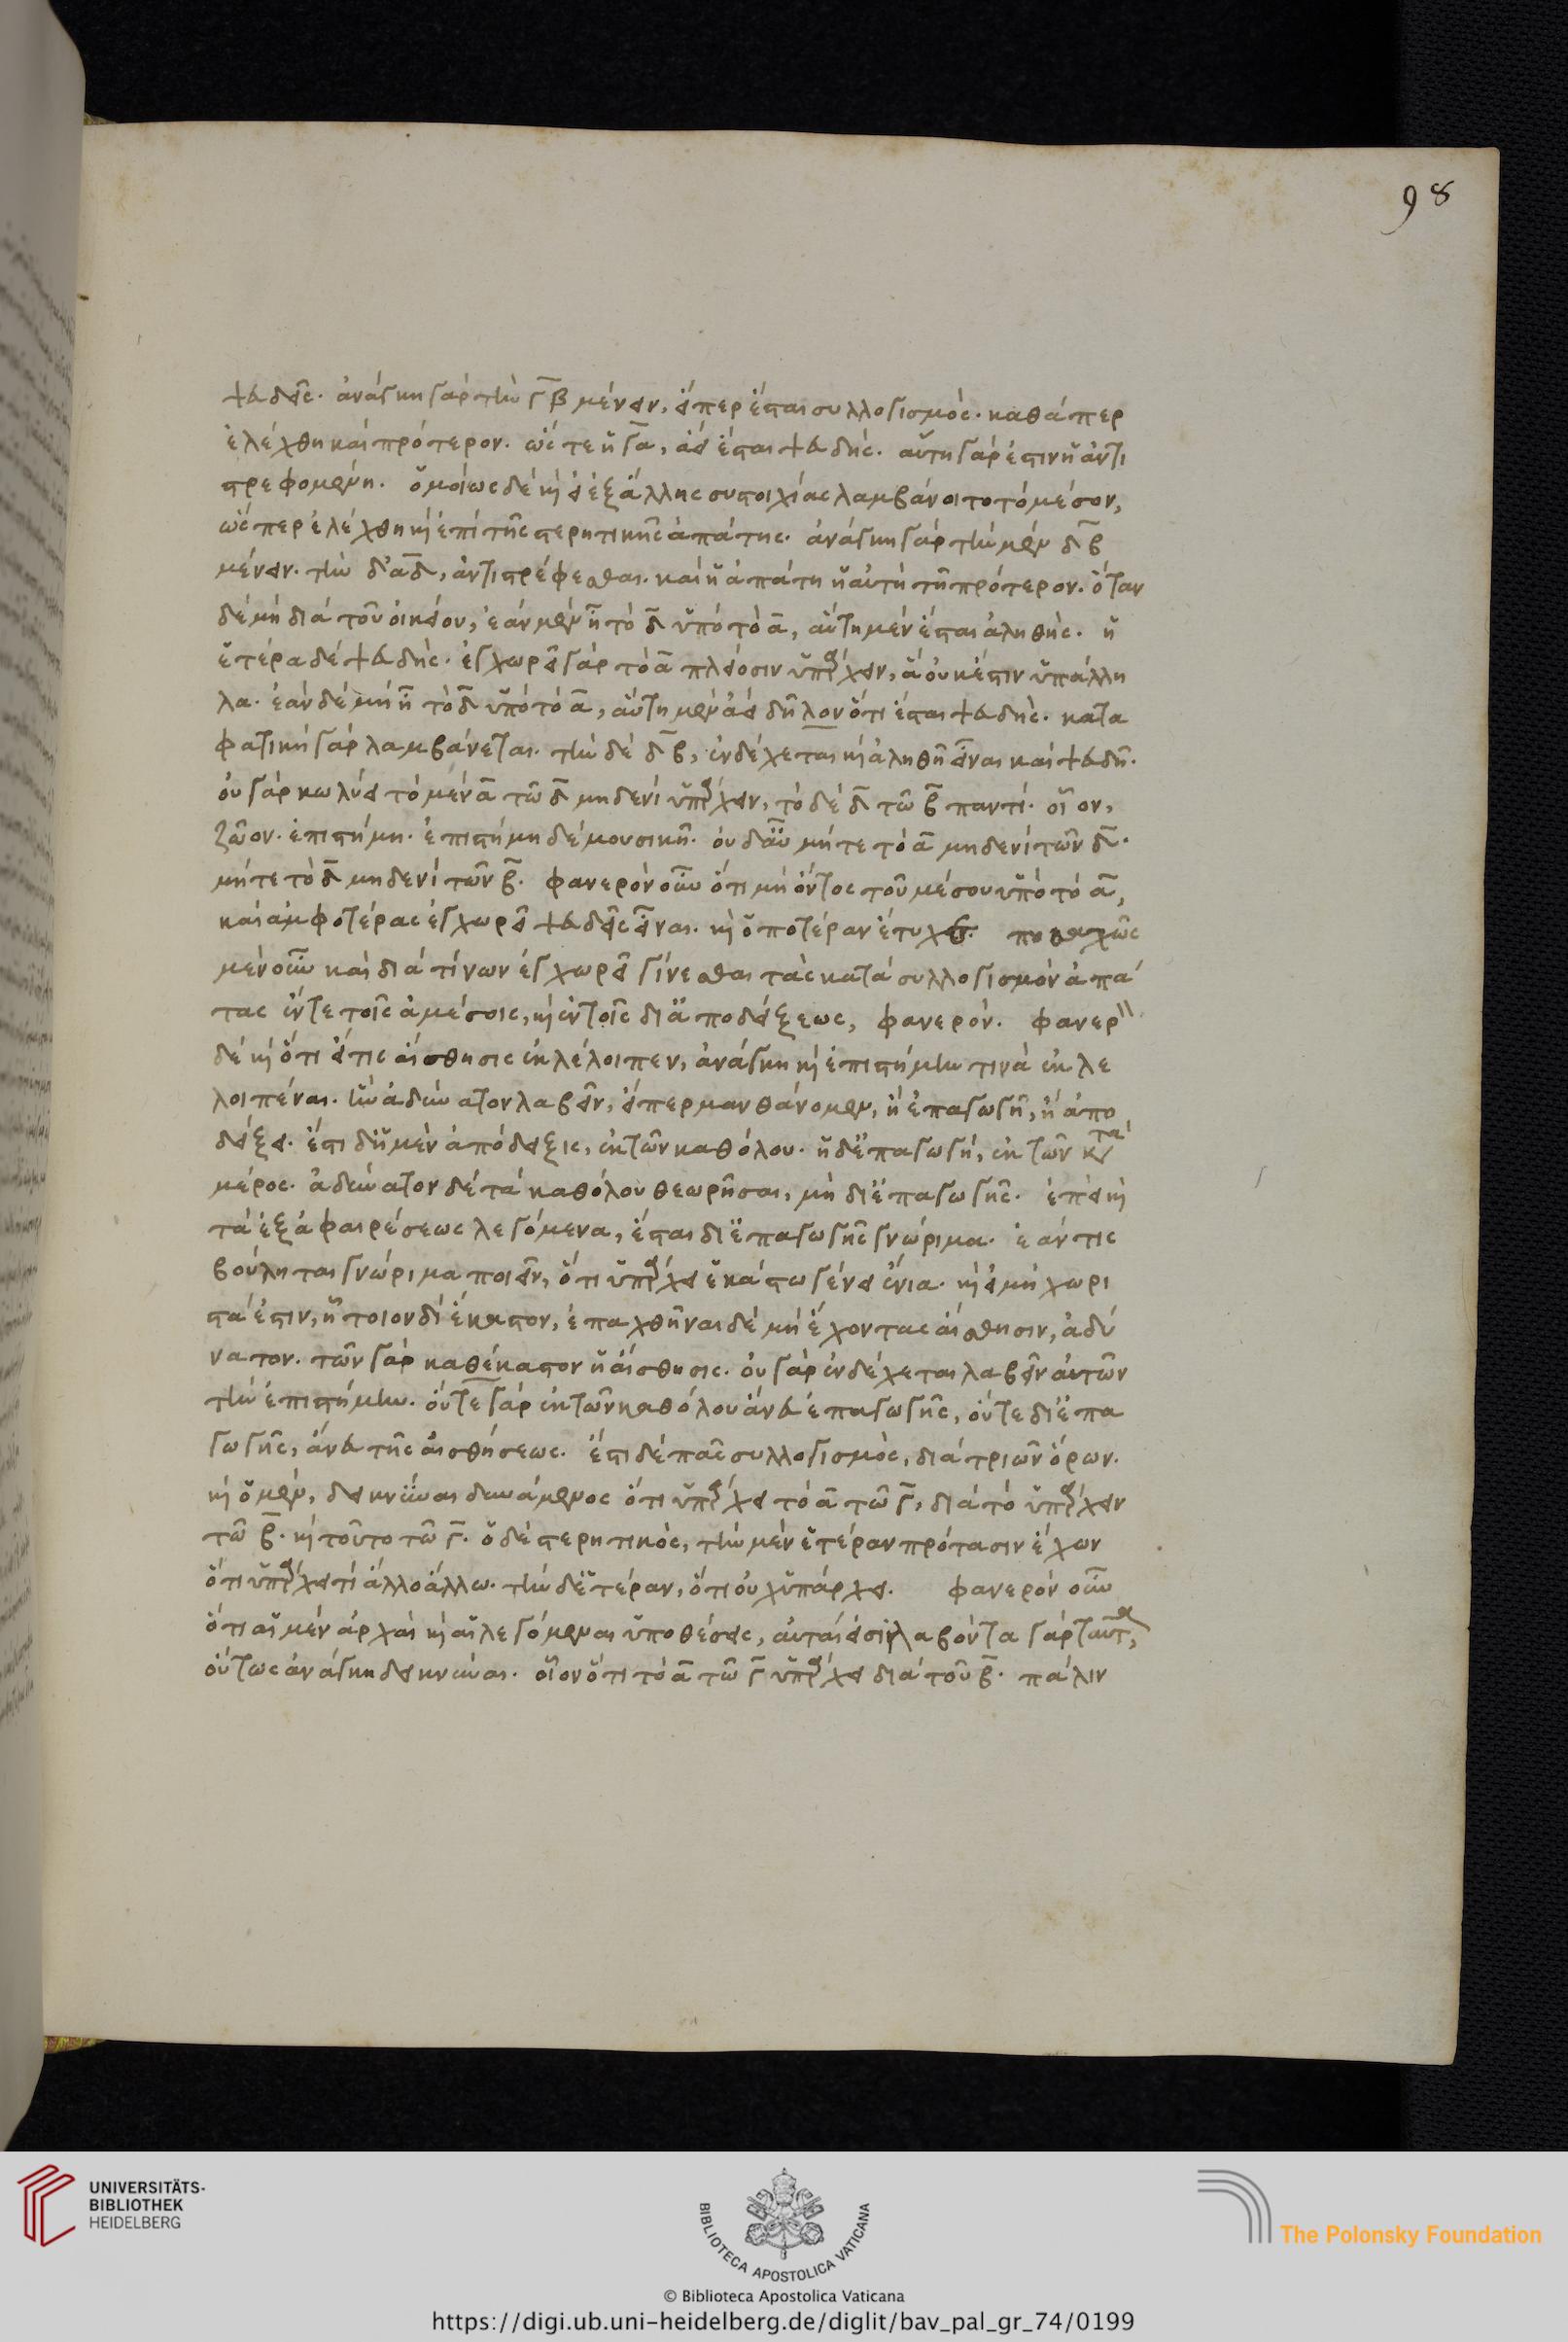 98
ψευδεῖς. ἀνάγκη γὰρ τὴν γ̅β μένειν, εἴπερ ἔσται συλλογισμός. καθάπερ
ἐλέχθη καὶ πρότερον. ὥστε ἡ γ̅α, ἀεὶ ἔσται ψευδής. αὕτη γάρ ἐστιν ἡ ἀντι
στρεφομένη. ὁμοίως δὲ κἂν εἰ ἐξ ἄλλης συστοιχίας λαμβάνοιτο τὸ μέσον,
ὥσπερ ἐλέχθη καὶ ἐπὶ τῆς στερητικῆς ἀπάτης. ἀνάγκη γὰρ τὴν μὲν δ̅β
μένειν. τὴν δ' α̅δ̅, ἀντιστρέφεσθαι. καὶ ἡ ἀπάτη ἡ αὐτὴ τῇ πρότερον. ὅταν
δὲ μὴ διὰ τοῦ οἰκείου, ἐὰν μὲν ᾖ τὸ δ̅ ὑπὸ τὸ α̅, αὕτη μὲν ἔσται ἀληθής. ἡ
ἑτέρα δὲ ψευδής. ἐγχωρεῖ γὰρ τὸ α̅ πλείοσιν ὑπάρχειν, ἃ οὐκ ἔστιν ὑπάλλη
λα. ἐὰν δὲ μὴ ᾖ τὸ δ̅ ὑπὸ τὸ α̅, αὕτη μὲν ἀεὶ δῆλον ὅτι ἔσται ψευδής. κατα
φατικὴ γὰρ λαμβάνεται. τὴν δὲ δ̅β, ἐνδέχεται καὶ ἀληθῆ εἶναι καὶ ψευδῆ.
οὐ γὰρ κωλύει τὸ μὲν α̅ τῶ δ̅ μηδενὶ ὑπάρχειν, τὸ δὲ δ̅ τῶ β̅ παντί. οἷον,
ζῶον. ἐπιστήμη. ἐπιστήμη δὲ μουσικῆ. οὐδ' αὖ μήτε τὸ α̅ μηδενὶ τῶν δ̅.
μήτε τὸ δ̅ μηδενὶ τῶν β̅. φανερὸν οὖν ὅτι μὴ ὄντος τοῦ μέσου ὑπὸ τὸ α̅,
καὶ ἀμφοτέρας ἐγχωρεῖ ψευδεῖς εἶναι. καὶ ὁποτέραν ἔτυχε. ποσαχῶς
μὲν οὖν καὶ διὰ τίνων ἐγχωρεῖ γίνεσθαι τὰς κατὰ συλλογισμὸν ἀπά
τας ἔν τε τοῖς ἀμέσοις, καὶ ἐν τοῖς δι' ἀποδείξεως, φανερόν. φανερὸν
δὲ καὶ ὅτι εἴ τις αἴσθησις ἐκλέλοιπεν, ἀνάγκη καὶ ἐπιστήμην τινὰ ἐκλε
λοιπέναι. ἣν ἀδύνατον λαβεῖν, εἴπερ μανθάνομεν, ἢ ἐπαγωγῇ, ἢ ἀπο
δείξει. ἔστι δ' ἡ μὲν ἀπόδειξις, ἐκ τῶν καθόλου. ἡ δ' ἐπαγωγή, ἐκ τῶν κατὰ
μέρος. ἀδύνατον δὲ τὰ καθόλου θεωρῆσαι, μὴ δι' ἐπαγωγῆς. ἐπεὶ καὶ
τὰ ἐξ ἀφαιρέσεως λεγόμενα, ἔσται δι' ἐπαγωγῆς γνώριμα. ἐάν τις
βούληται γνώριμα ποιεῖν, ὅτι ὑπάρχει ἑκάστω γένει ἔνια. καὶ εἰ μὴ χωρι
στά ἐστιν, ἧ τοιονδὶ ἕκαστον, ἐπαχθῆναι δὲ μὴ ἔχοντας αἴσθησιν, ἀδύ
νατον. τῶν γὰρ καθέκαστον ἡ αἴσθησις. οὐ γὰρ ἐνδέχεται λαβεῖν αὐτῶν
τὴν ἐπιστήμην. οὔτε γὰρ ἐκ τῶν καθόλου ἄνευ ἐπαγωγῆς, οὔτε δι' ἐπα
γωγῆς, ἄνευ τῆς αἰσθήσεως. ἔστι δὲ πᾶς συλλογισμὸς, διὰ τριῶν ὅρων.
καὶ ὁ μὲν, δεικνύναι δυνάμενος ὅτι ὑπάρχει τὸ α̅ τῶ γ̅, διὰ τὸ ὑπάρχειν
τῶ β̅. καὶ τοῦτο τῶ γ̅. ὁ δὲ στερητικός, τὴν μὲν ἑτέραν πρότασιν ἔχων
ὅτι ὑπάρχει τὶ ἄλλο ἄλλω. τὴν δ' ἑτέραν, ὅτι οὐχ ὑπάρχει. φανερὸν οὖν
ὅτι αἱ μὲν ἀρχαὶ καὶ αἱ λεγόμεναι ὑποθέσεις, αὗταί εἰσι λαβόντα γὰρ ταῦτα,
οὕτως ἀνάγκη δεικνύναι. οἷον ὅτι τὸ α̅ τῶ γ̅ ὑπάρχει διὰ τοῦ β̅. πάλιν
UNIVERSITÄTS-
BIBLIOTHEK
HEIDELBERG
BIBLIOTECA APOSTOLICA VATICANA
The Polonsky Foundation
© Biblioteca Apostolica Vaticana
https://digi.ub.uni-heidelberg.de/diglit/bav_pal_gr_74/0199